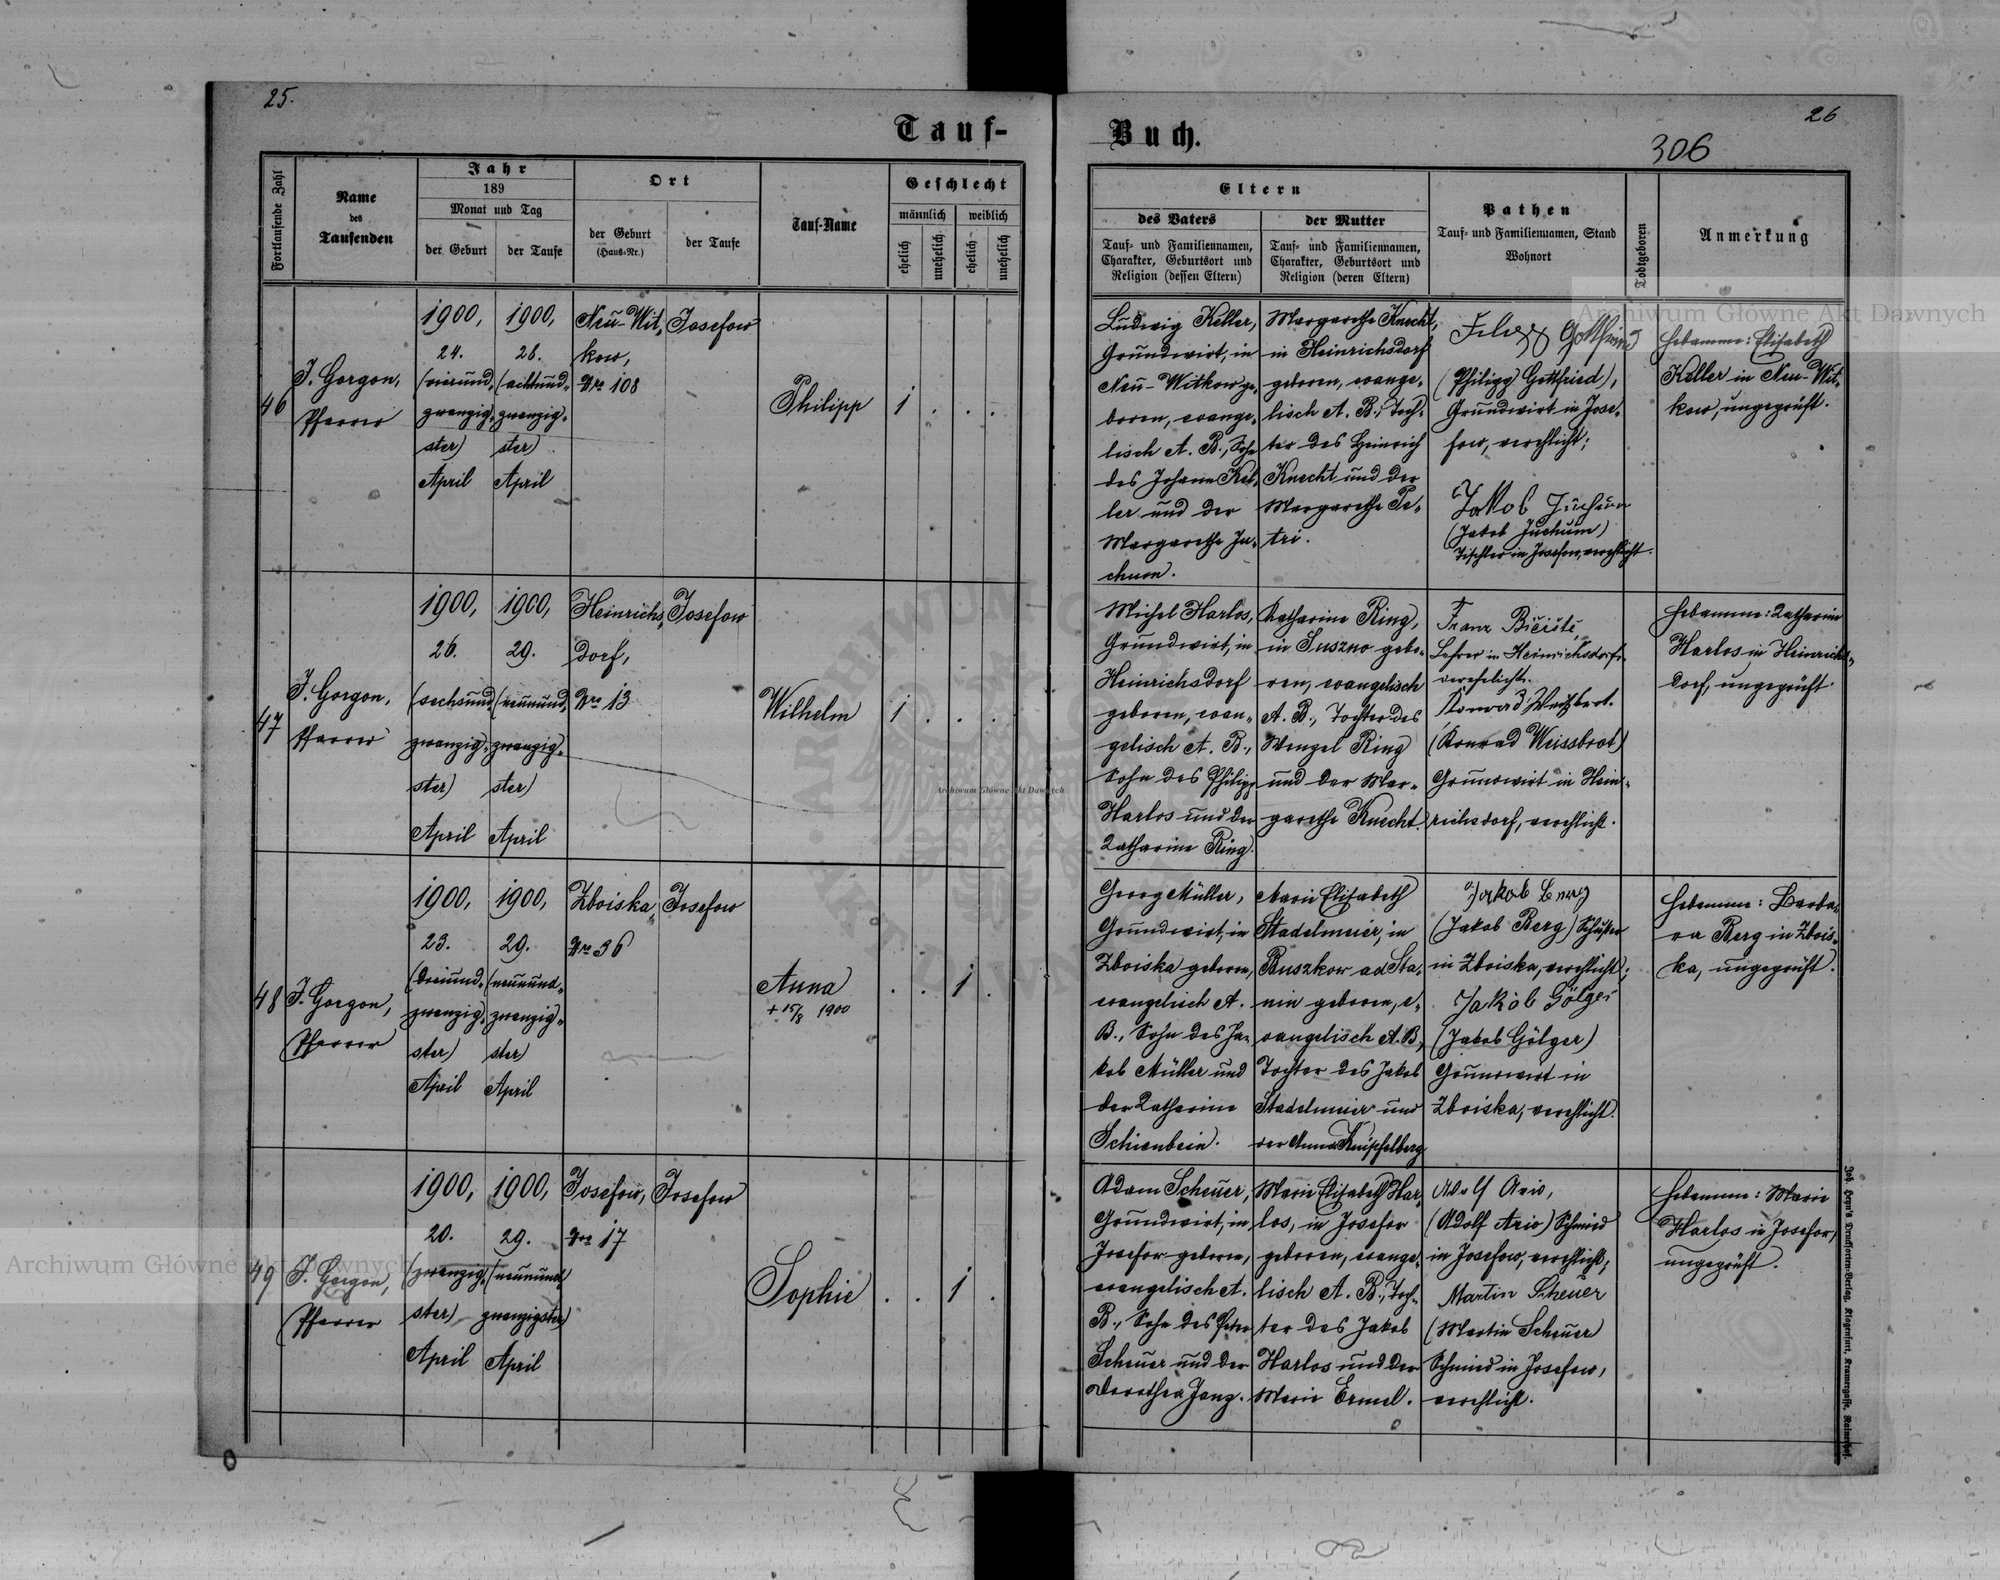 25.
26
306
Tauf-
Buch.
Fortlaufende Zahl
Name
des
Taufenden
Jahr
189
Monat und Tag
der Geburt
der Taufe
Ort
der Geburt
(Haus-Nr.)
der Taufe
Tauf-Name
Geschlecht
männlich
weiblich
ehelich
unehelich
ehelich
unehelich
Eltern
des Vaters
Tauf- und Familiennamen,
Charakter, Geburtsort und
Religion (dessen Eltern)
der Mutter
Tauf- und Familiennamen,
Charakter, Geburtsort und
Religion (deren Eltern)
Pathen
Tauf- und Familiennamen, Stand
Wohnort
Todtgeboren
Anmerkung
46
J. Gorgon,
Pfarrer
1900,
24.
(vierund-
zwanzig-
ster)
April
1900,
28.
(achtund-
zwanzig-
ster)
April
Neu-Wit-
kow,
Nro 108
Josefow
Philipp
1 . . .
Ludwig Keller,
Grundwirt, in
Neu-Witkow ge-
boren, evange-
lisch A. B., Sohn
des Johann Kel-
ler und der
Margarethe Ju-
chum.
Margarethe Knecht,
in Heinrichsdorf
geboren, evange-
lisch A. B., Toch-
ter des Heinrich
Knecht und der
Margarethe Pe-
tri.
Gottfried
(Philipp Gottfried),
Grundwirt in Jose-
fow, verehlicht;
Jakob Juchum
(Jakob Juchum)
Tischler in Josefow, verehlicht.
Hebamme: Elisabeth
Keller in Neu-Wit-
kow, ungeprüft.
47
J. Gorgon,
Pfarrer
1900,
26.
(sechsund-
zwanzig-
ster)
April
1900,
29.
(neunund-
zwanzig-
ster)
April
Heinrichs-
dorf,
Nro 13
Josefow
Wilhelm
1 . . .
Michel Harlos,
Grundwirt, in
Heinrichsdorf
geboren, evan-
gelisch A. B.,
Sohn des Philipp
Harlos und der
Katharine Ring.
Katharine Ring,
in Suszno gebo-
ren, evangelisch
A. B., Tochter des
Wenzel Ring
und der Mar-
garethe Knecht.
Franz
Lehrer in Heinrichsdorf,
verehelicht.
Konrad
(Konrad Weissbrot)
Grundwirt in Hein-
richsdorf, verehlicht.
Hebamme: Katharine
Harlos in Heinrichs-
dorf, ungeprüft.
48
J. Gorgon,
Pfarrer
1900,
23.
(dreiund-
zwanzig-
ster)
April
1900,
29.
(neunund-
zwanzig-
ster)
April
Zboiska,
Nro 36
Josefow
Anna
+ 15/8 1900
. . 1 .
Georg Müller,
Grundwirt, in
Zboiska geboren,
evangelisch A.
B., Sohn des Ja-
kob Müller und
der Katharine
Schienbein.
Marie Elisabeth
Stadelmeier, in
Ruszkow ad Sta-
nin geboren, e-
vangelisch A. B.,
Tochter des Jakob
Stadelmeier und
der Anna
Jakob Berg
(Jakob Berg) Schuster
in Zboiska, verehlicht;
Jakob Gölger
(Jakob Gölger)
Grundwirt in
Zboiska, verehlicht.
Hebamme: Barba-
ra Berg in Zbois-
ka, ungeprüft.
49
J. Gorgon,
Pfarrer
1900,
20.
(zwanzig-
ster)
April
1900,
29.
(neunund
zwanzigster)
April
Josefow,
Nro 17
Josefow
Sophie
. . 1 .
Adam Scheuer,
Grundwirt, in
Josefow geboren,
evangelisch A.
B., Sohn des Peter
Scheuer und der
Dorothea Janz.
Marie Elisabeth Har-
los, in Josefow
geboren, evange-
lisch A. B., Toch-
ter des Jakob
Harlos und der
Marie Ermel.
Adolf Ario,
(Adolf Ario) Schmied
in Josefow, verehlicht;
Martin Scheuer
(Martin Scheuer)
Schmied in Josefow,
verehlicht.
Hebamme: Marie
Harlos in Josefow,
ungeprüft.
Joh. Heyn's Drucksorten-Verlag, Klagenfurt, Kramergasse,
Archiwum Główne Akt Dawnych
Archiwum Główne Akt Dawnych
Archiwum Główne Akt Dawnych